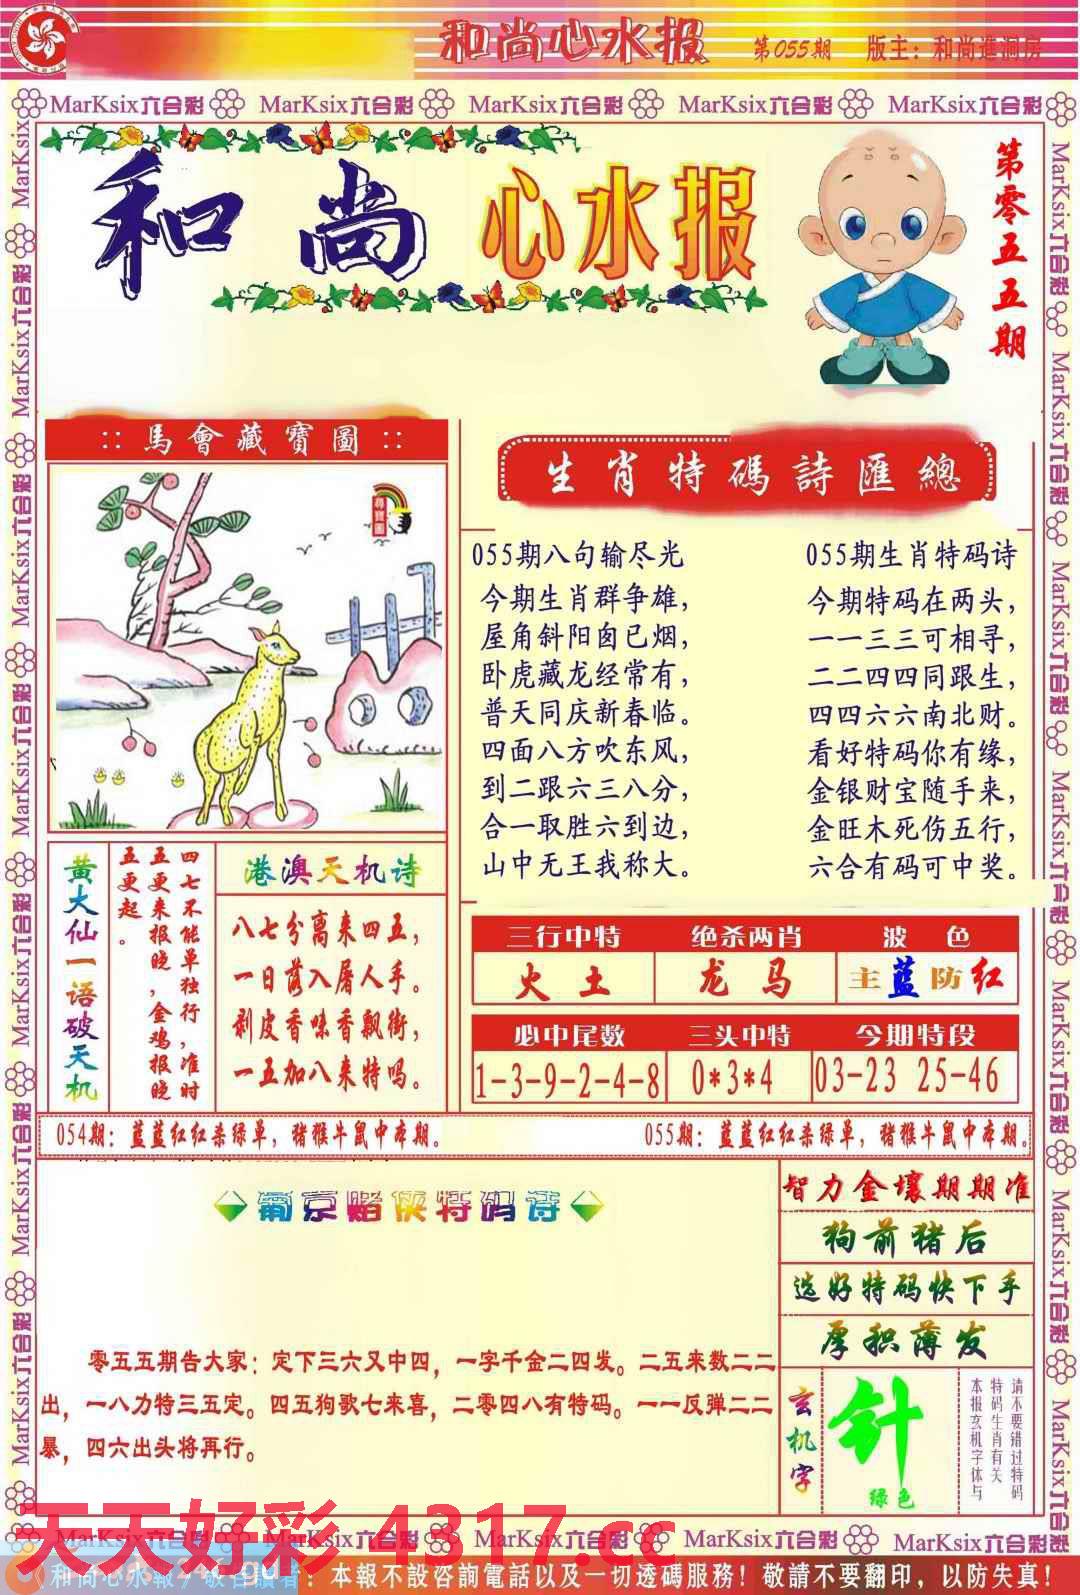 和尚心水报 第055期 版主：和尚進洞房
MarKsix六合彩 MarKsix六合彩 MarKsix六合彩 MarKsix六合彩 MarKsix六合彩
和尚 心水报
第零五五期
::馬會藏寶圖::
生肖特碼詩匯總
055期八句输尽光
今期生肖群争雄，
屋角斜阳囱已烟，
卧虎藏龙经常有，
普天同庆新春临。
四面八方吹东风，
到二跟六三八分，
合一取胜六到边，
山中无王我称大。
055期生肖特码诗
今期特码在两头，
一一三三可相寻，
二二四四同跟生，
四四六六南北财。
看好特码你有缘，
金银财宝随手来，
金旺木死伤五行，
六合有码可中奖。
黄大仙一语破天机
四七不能单独行，准时
五更来报晚，金鸡报晚
五更起。
港澳天机诗
八七分离来四五，
一日落入屠人手。
剥皮香味香飘街，
一五加八来特吗。
三行中特 绝杀两肖 波色
火土 龙马 主蓝防红
必中尾数 三头中特 今期特段
1-3-9-2-4-8 0*3*4 03-23 25-46
054期：蓝蓝红红杀绿单，猪猴牛鼠中本期。 055期：蓝蓝红红杀绿单，猪猴牛鼠中本期。
葡京赌侠特码诗
零五五期告大家：定下三六又中四，一字千金二四发。二五来数二二
出，一八力特三五定。四五狗歌七来喜，二零四八有特码。一一反弹二二
暴，四六出头将再行。
智力金壤期期准
狗前猪后
选好特码快下手
厚积薄发
玄机字
针
绿色
请不要错过特码
特码生肖有关
本报玄机字体与
MarKsix六合彩 MarKsix六合彩 MarKsix六合彩 MarKsix六合彩 MarKsix六合彩
天天好彩 4317.cc
和尚心水報 敬告讀者：本報不設咨詢電話以及一切透碼服務！敬請不要翻印，以防失真！